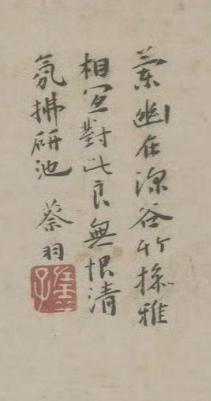 蘭幽在深谷竹操雅
相宜對此良無恨清
氛拂研池 蔡羽